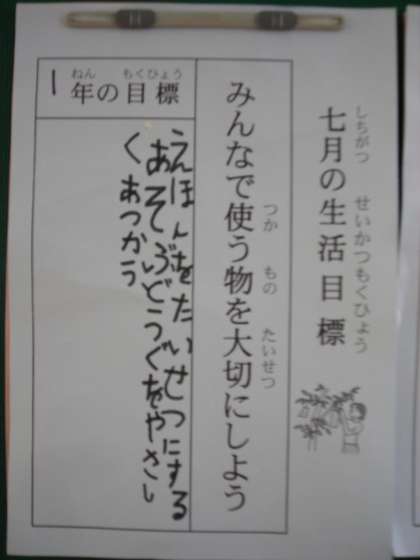 しちがつ せいかつもくひょう
七月の生活目標
つか もの たいせつ
みんなで使う物を大切にしよう
ねん もくひょう
1年の目標
えほんをたいせつにする
あそぶどうぐをやさし
くあつかう